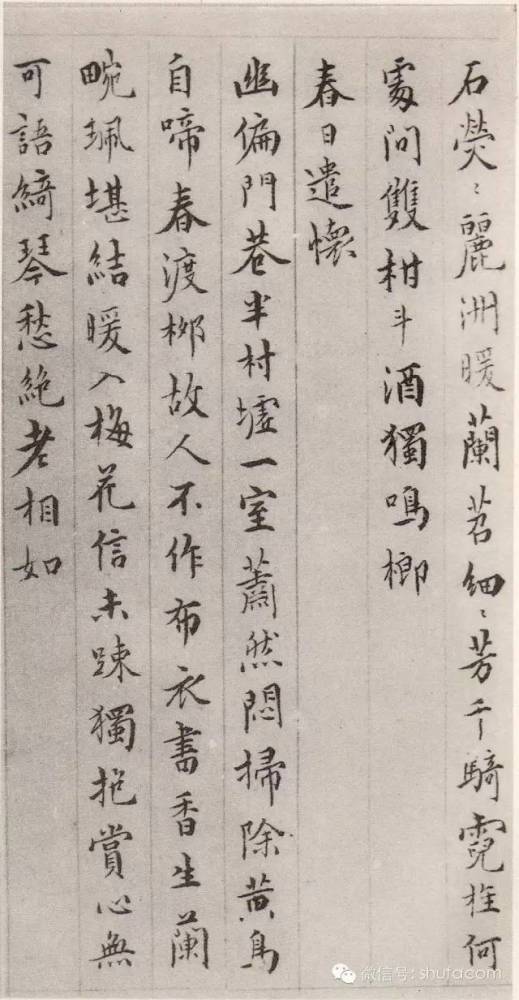 石熒〻麗洲暖蘭苕細〻芳千騎霓旌何
處问雙柑斗酒獨鳴榔
春日遣懷
幽偏門巷半村墟一室蕭然悶掃除黄鳥
自啼春渡柳故人不作布衣書香生蘭
畹珮堪結暖入梅花信未踈獨抱賞心無
可語綺琴愁絶老相如
微信号: shufacn